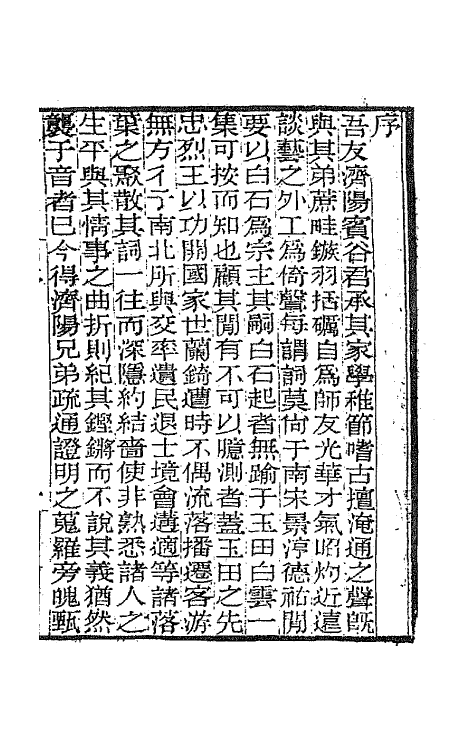 序
吾友濟陽賓谷君承其家學稚節嗜古擅淹通之聲旣
與其弟蔗畦鏃羽括礪自爲師友光華才氣昭灼近遠
談藝之外工爲倚聲每謂詞莫尙于南宋景淳德祐閒
要以白石爲宗主其嗣白石起者無踰于玉田白雲一
集可按而知也顧其閒有不可以臆測者蓋玉田之先
忠烈王以功開國家世蘭錡遭時不偶流落播遷客游
無方彳亍南北所與交率遺民退士境會遘適等諸落
葉之聚散其詞一往而深隱約結嗇使非熟悉諸人之
生平與其情事之曲折則紀其鏗鏘而不說其義猶然
龔于音者巳今得濟陽兄弟疏通證明之蒐羅旁魄甄